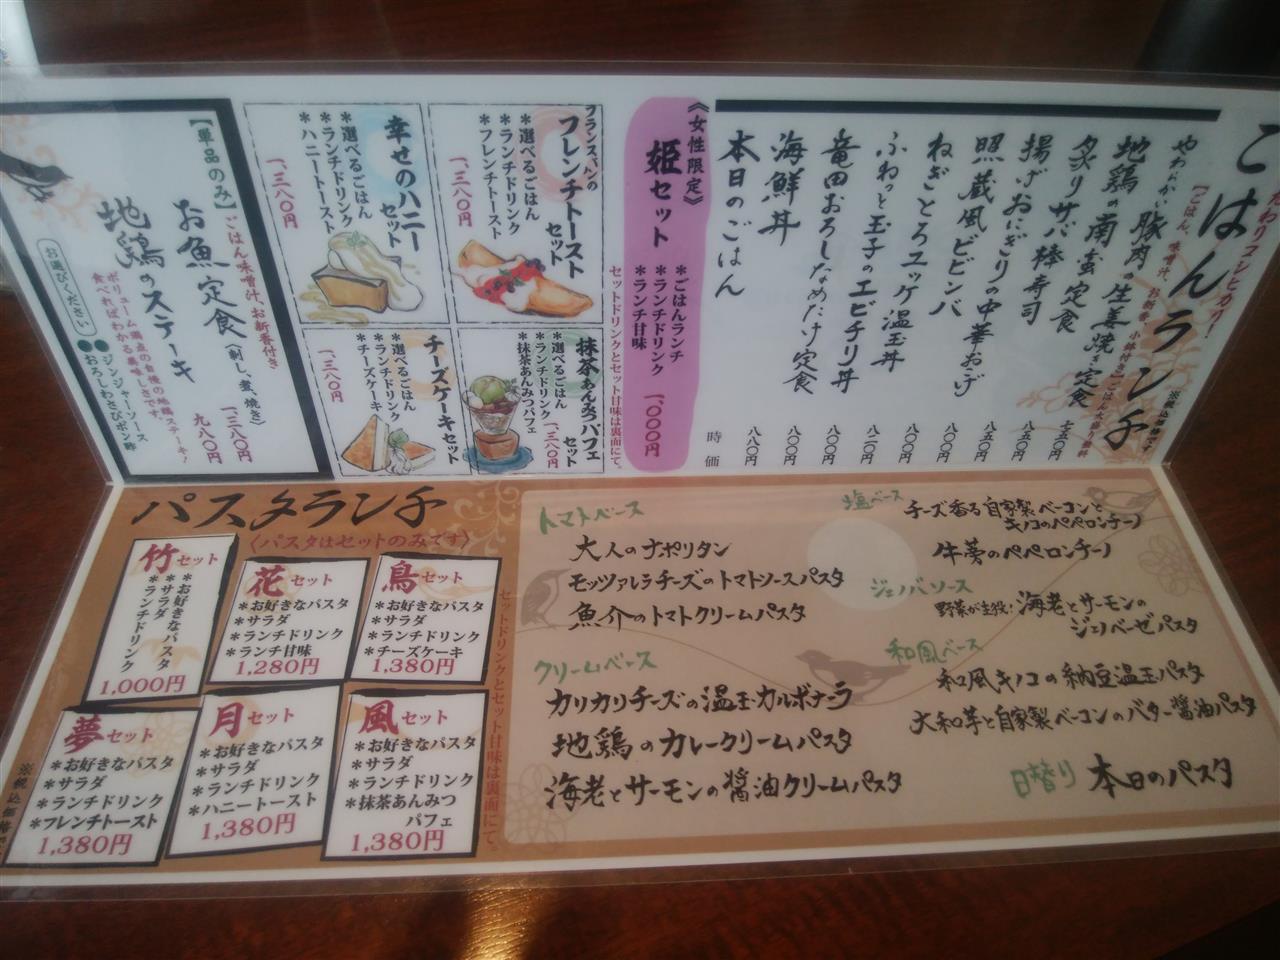 こだわりコシヒカリ!
ごはんランチ
【ごはん、味噌汁、お新香、小鉢付き】ごはん大盛り無料
※税込価格です
やわらかい豚肉の生姜焼き定食
七五〇円
地鶏の南蛮定食
八五〇円
炙りサバ棒寿司
八五〇円
揚げおにぎりの中華おこげ
八〇〇円
照蔵風ビビンバ
八〇〇円
ねぎとろユッケ温玉丼
八二〇円
ふわっと玉子のエビチリ丼
八〇〇円
竜田おろしなめたけ定食
八〇〇円
海鮮丼
八八〇円
本日のごはん
時価
《女性限定》
姫セット
*ごはんランチ
*ランチドリンク
*ランチ甘味
一、〇〇〇円
セットドリンクとセット甘味は裏面にて。
フランスパンの
フレンチトースト
セット
*選べるごはん
*ランチドリンク
*フレンチトースト
一、三八〇円
幸せのハニー
セット
*選べるごはん
*ランチドリンク
*ハニートースト
一、三八〇円
抹茶あんみつパフェ
セット
*選べるごはん
*ランチドリンク
*抹茶あんみつパフェ
一、三八〇円
チーズケーキセット
*選べるごはん
*ランチドリンク
*チーズケーキ
一、三八〇円
【単品のみ】ごはん味噌汁、お新香付き
お魚定食(刺し、煮、焼き)
一、三八〇円
地鶏のステーキ
九八〇円
ボリューム満点の自慢の地鶏ステーキ!
食べればわかる美味しさです。
お選びください
●ジンジャーソース
●おろしわさびポン酢
パスタランチ
〈パスタはセットのみです〉
竹セット
*お好きなパスタ
*サラダ
*ランチドリンク
1,000円
花セット
*お好きなパスタ
*サラダ
*ランチドリンク
*ランチ甘味
1,280円
鳥セット
*お好きなパスタ
*サラダ
*ランチドリンク
*チーズケーキ
1,380円
夢セット
*お好きなパスタ
*サラダ
*ランチドリンク
*フレンチトースト
1,380円
月セット
*お好きなパスタ
*サラダ
*ランチドリンク
*ハニートースト
1,380円
風セット
*お好きなパスタ
*サラダ
*ランチドリンク
*抹茶あんみつ
パフェ
1,380円
セットドリンクとセット甘味は裏面にて。
※税込価格です
トマトベース
大人のナポリタン
モッツァレラチーズのトマトソースパスタ
魚介のトマトクリームパスタ
クリームベース
カリカリチーズの温玉カルボナーラ
地鶏のカレークリームパスタ
海老とサーモンの醤油クリームパスタ
塩ベース
チーズ香る自家製ベーコンと
キノコのペペロンチーノ
牛蒡のペペロンチーノ
ジェノバソース
野菜が主役!海老とサーモンの
ジェノベーゼパスタ
和風ベース
和風キノコの納豆温玉パスタ
大和芋と自家製ベーコンのバター醤油パスタ
日替り 本日のパスタ